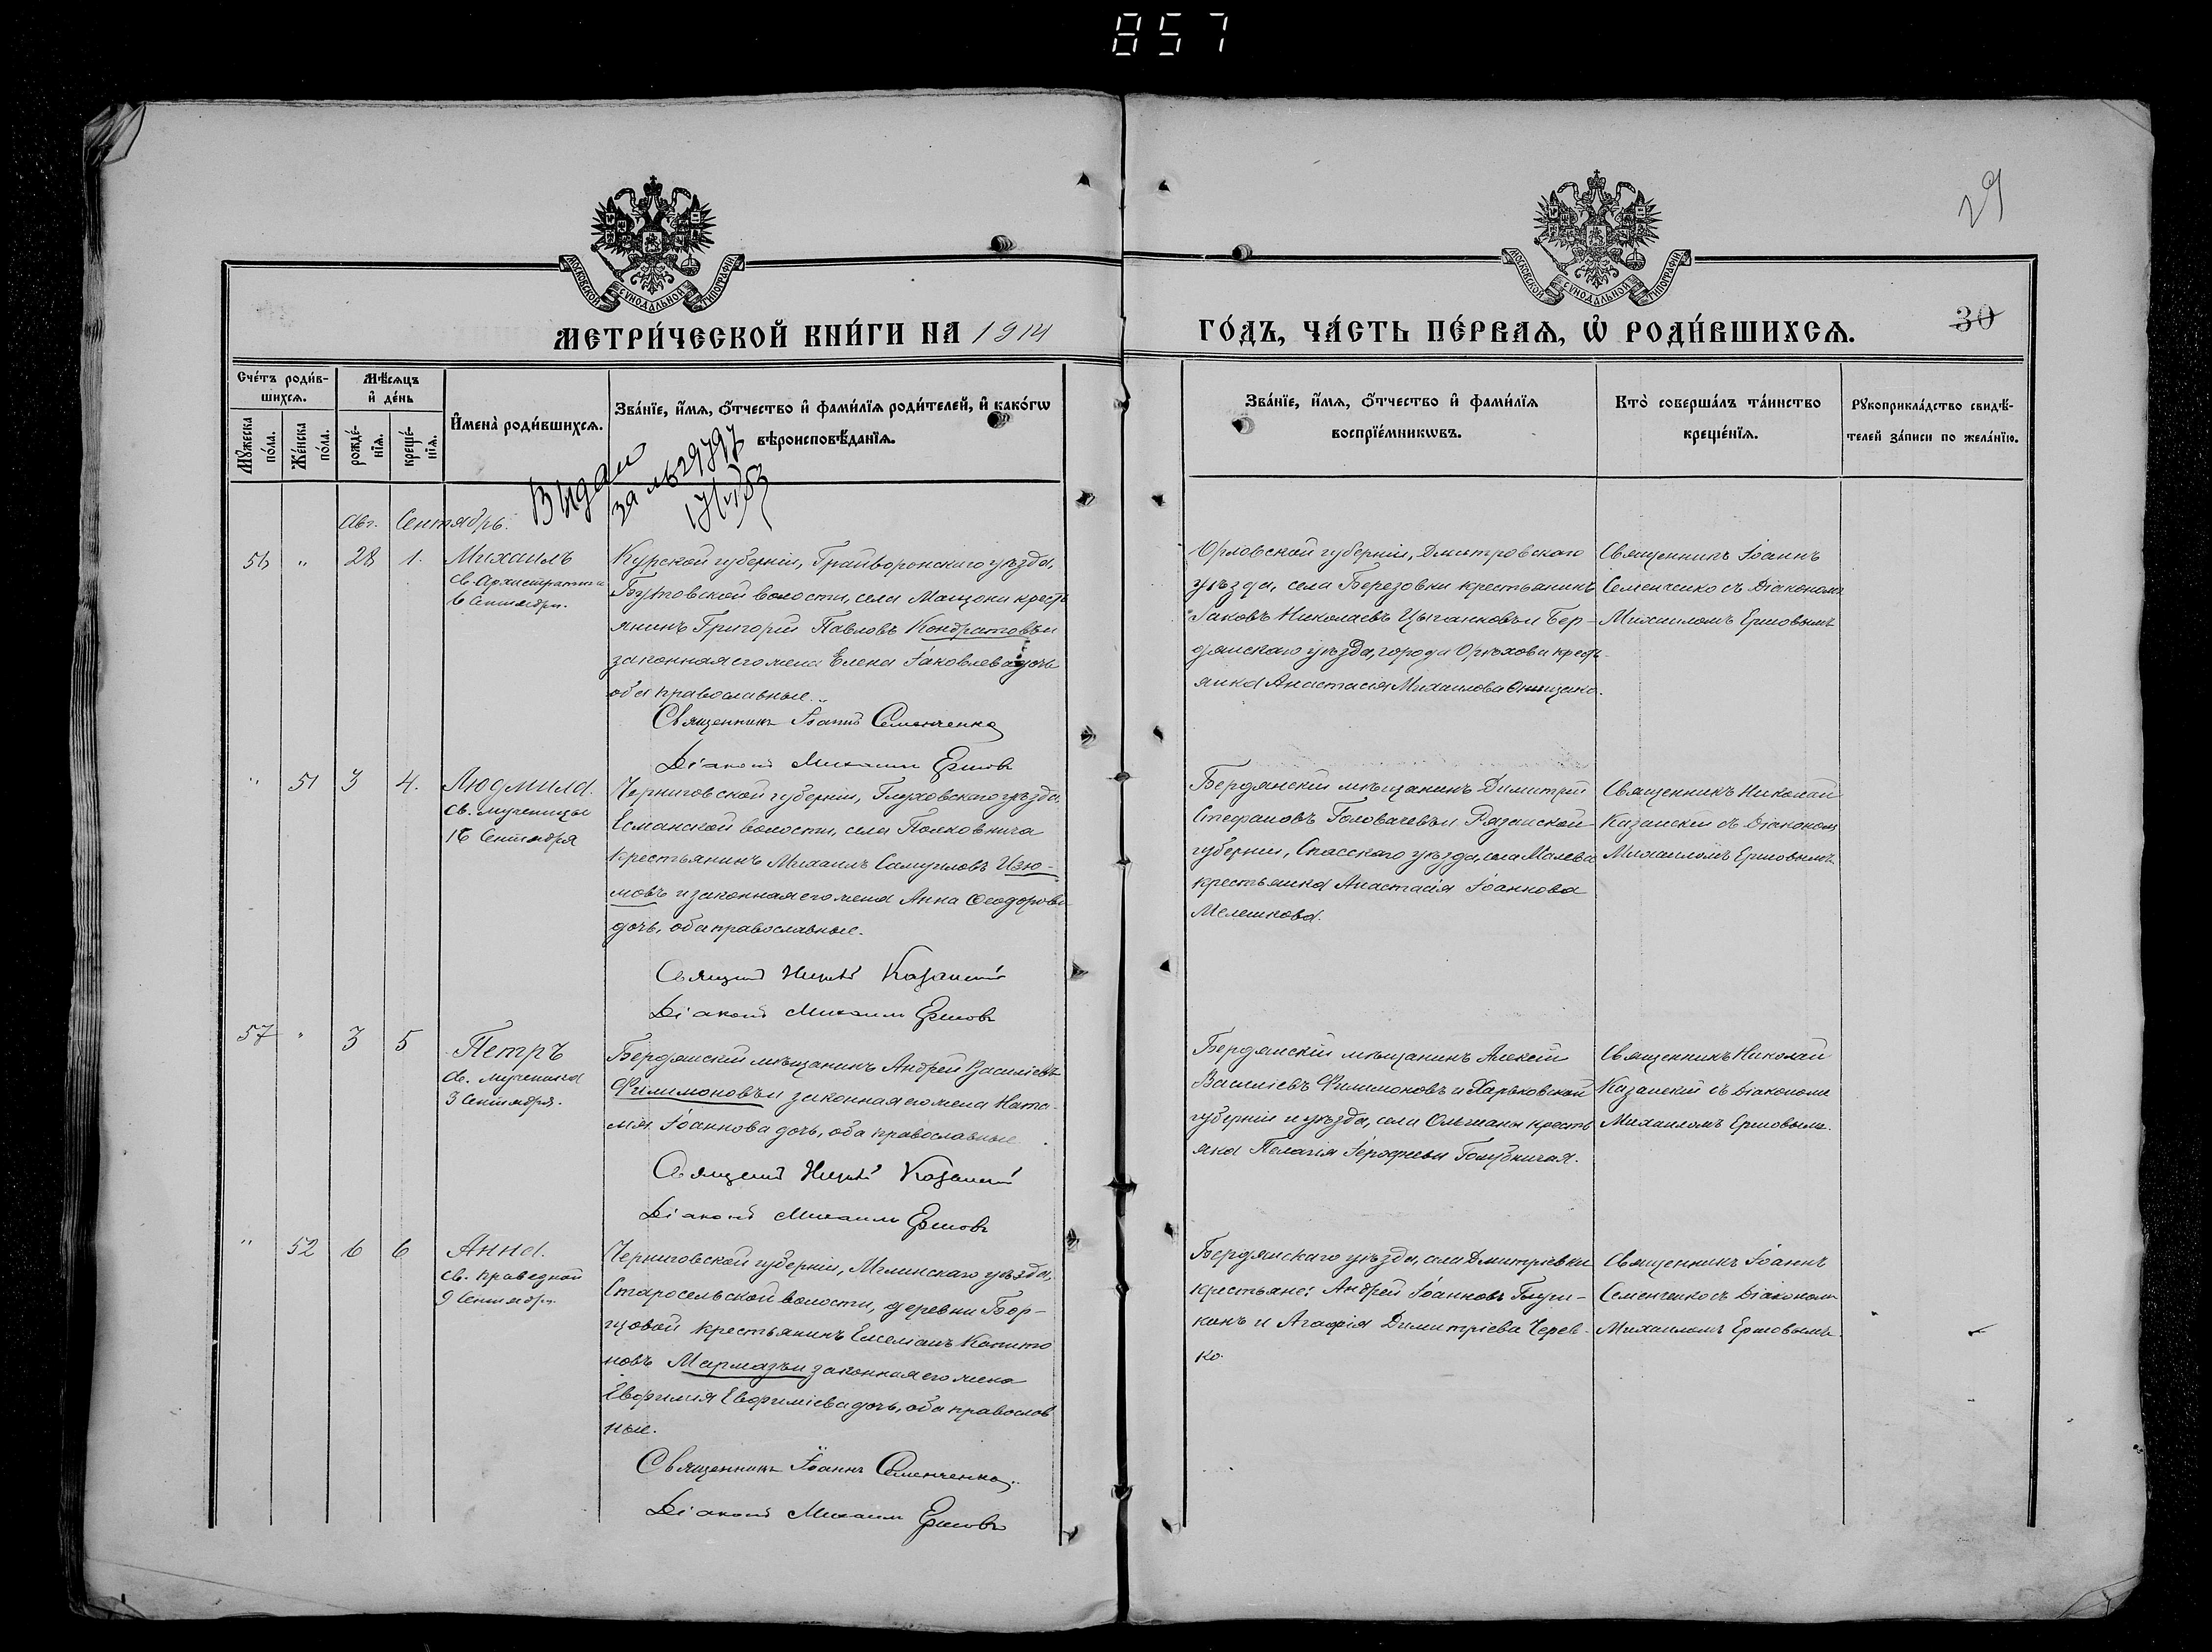 857
29
МОСКОВСКОЙ СѴНОДАЛЬНОЙ ТИПОГРАФІИ
МОСКОВСКОЙ СѴНОДАЛЬНОЙ ТИПОГРАФІИ
МЕТРИ́ЧЕСКОЙ КНИ́ГИ НА 1914
ГО́ДЪ, ЧА́СТЬ ПЕ́РВАѦ, Ѡ҆ РОДИ́ВШИХСѦ.
30
Сче́тъ роди́в-
шихсѧ.
Мѣ́сѧцъ
и҆ де́нь
И҆мена̀ роди́вшихсѧ.
Зва́нїе, и҆́мѧ, ѻ҆́тчество и҆ фами́лїѧ роди́телей, и҆ како́гѡ
вѣроисповѣ́данїѧ.
Мꙋ́жеска по́ла.
Же́нска по́ла.
рожде́-
нїѧ.
креще́-
нїѧ.
Зва́нїе, и҆́мѧ, ѻ҆́тчество и҆ фами́лїѧ
воспрїе́мникѡвъ.
Кто̀ соверша́лъ та́инство
креще́нїѧ.
Рꙋкоприкла́дство свидѣ́-
телей за́писи по жела́нїю.
Выдан
за №
Авг. Сентябрь.
56 " 28 1. Михаилъ
Св. Архистратига
6 Сентября.
Курской губерніи, Грайворонскаго уѣзда,
волости, села крест
янинъ Григорій Павловъ Кондратовъ и
законная его жена Елена Іаковлева дочь
оба православные.
Священникъ Іоаннъ Семенченко
Діаконъ Михаилъ Ершовъ
Орловской губерніи, Дмитровскаго
уѣзда, села Березовки крестьянинъ
Іаковъ Николаевъ Цыганковъ и Бер-
дянскаго уѣзда, города Орѣхова крест
янка Анастасія Михаилова
Священникъ Іоаннъ
Семенченко съ Діакономъ
Михаиломъ Ершовымъ
" 51 3 4. Людмила.
св. мученицы
16 Сентября
Черниговской губерніи, Глуховскаго уѣзда,
Есманской волости, села
крестьянинъ Михаилъ Самуиловъ Изю-
мовъ и законная его жена Анна Ѳеодорова
дочь, оба православные.
Священ Казанскій
Діаконъ Михаилъ Ершовъ
Бердянскій мѣщанинъ Димитрій
Стефановъ Головачевъ и Рязанской
губерніи, Спасскаго уѣзда, села
крестьянка Анастасія Іоаннова
Мелешкова.
Священникъ Николай
Казанскій съ Діакономъ
Михаиломъ Ершовымъ
57 " 3 5 Петръ
св. мученика
3 Сентября.
Бердянскій мѣщанинъ Андрей Василіевъ
Филимоновъ и законная его жена Ната-
лія Іоаннова дочь, оба православные
Священ Казанскій
Діаконъ Михаилъ Ершовъ
Бердянскій мѣщанинъ Алексій
Василіевъ Филимоновъ и Харьковской
губерніи и уѣзда, села Ольшаны кресть
янка Пелагія
Священникъ Николай
Казанскій съ Діакономъ
Михаиломъ Ершовымъ.
" 52 6 6 Анна.
св. праведной
9 Сентября
Черниговской губерніи, Мглинскаго уѣзда,
Старосельской волости, деревни Бор-
щовой крестьянинъ Емеліанъ Капито
новъ Мармазъ и законная его жена
Евфимія Евфиміева дочь, оба православ
ные.
Священникъ Іоаннъ Семенченко.
Діаконъ Михаилъ Ершовъ
Бердянскаго уѣзда, села Дмитріевки
крестьяне: Андрей Іоанновъ
и Агафія Димитріева Черев-
ко.
Священникъ Іоаннъ
Семенченко съ Діакономъ
Михаиломъ Ершовымъ